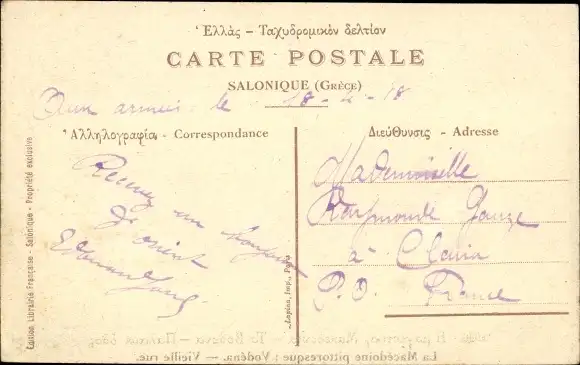 Ἑλλὰς – Ταχυδρομικὸν δελτίον
CARTE POSTALE
SALONIQUE (GRÈCE)
Aux armées le 18-4-18
Ἀλληλογραφία - Correspondance
Διεύθυνσις - Adresse
Recevez un bonjour
d'orient
Mademoiselle
Raymonde
à Claira
P.O. France
Édition Librairie Française - Salonique - Propriété exclusive
Lapina, Imp., Paris
La Macédoine pittoresque : Vodéna. — Vieille rue.